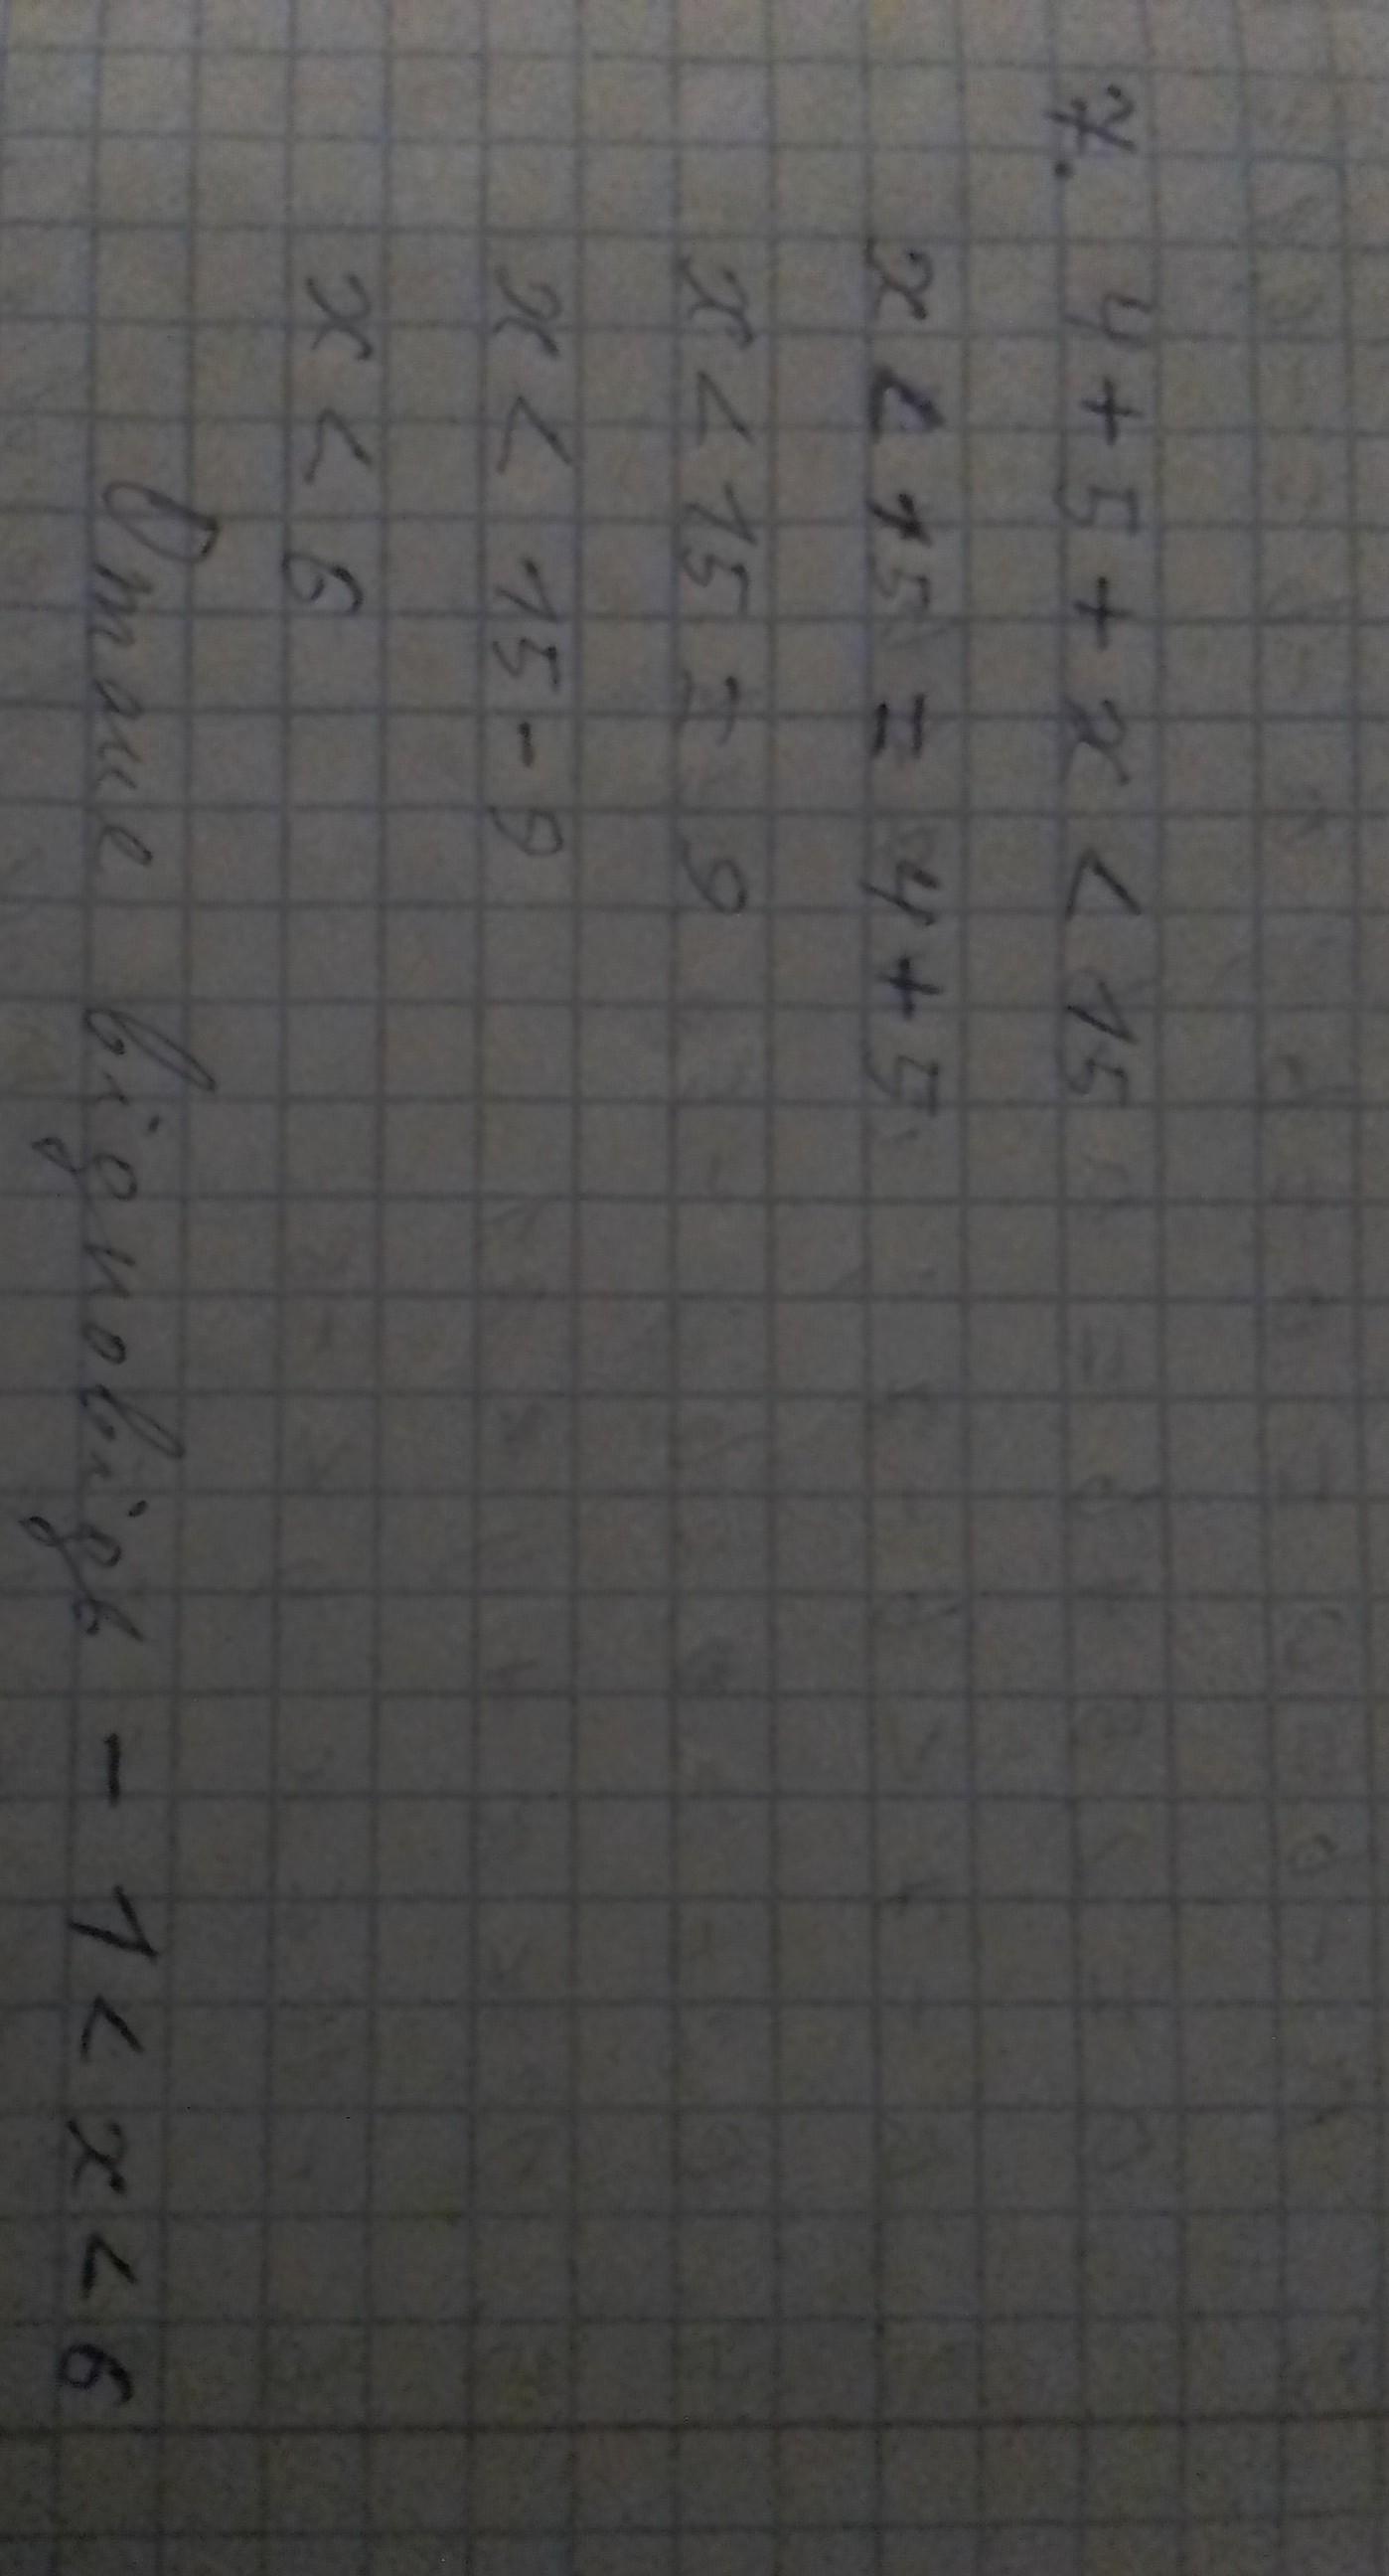 7. 4+5+x<15
x<15=4+5
x<15=9
x<15-9
x<6
Отже відповідь - 1<x<6